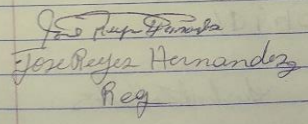 Jose Reyes Hernandez
Jose Reyes Hernandez
Reg